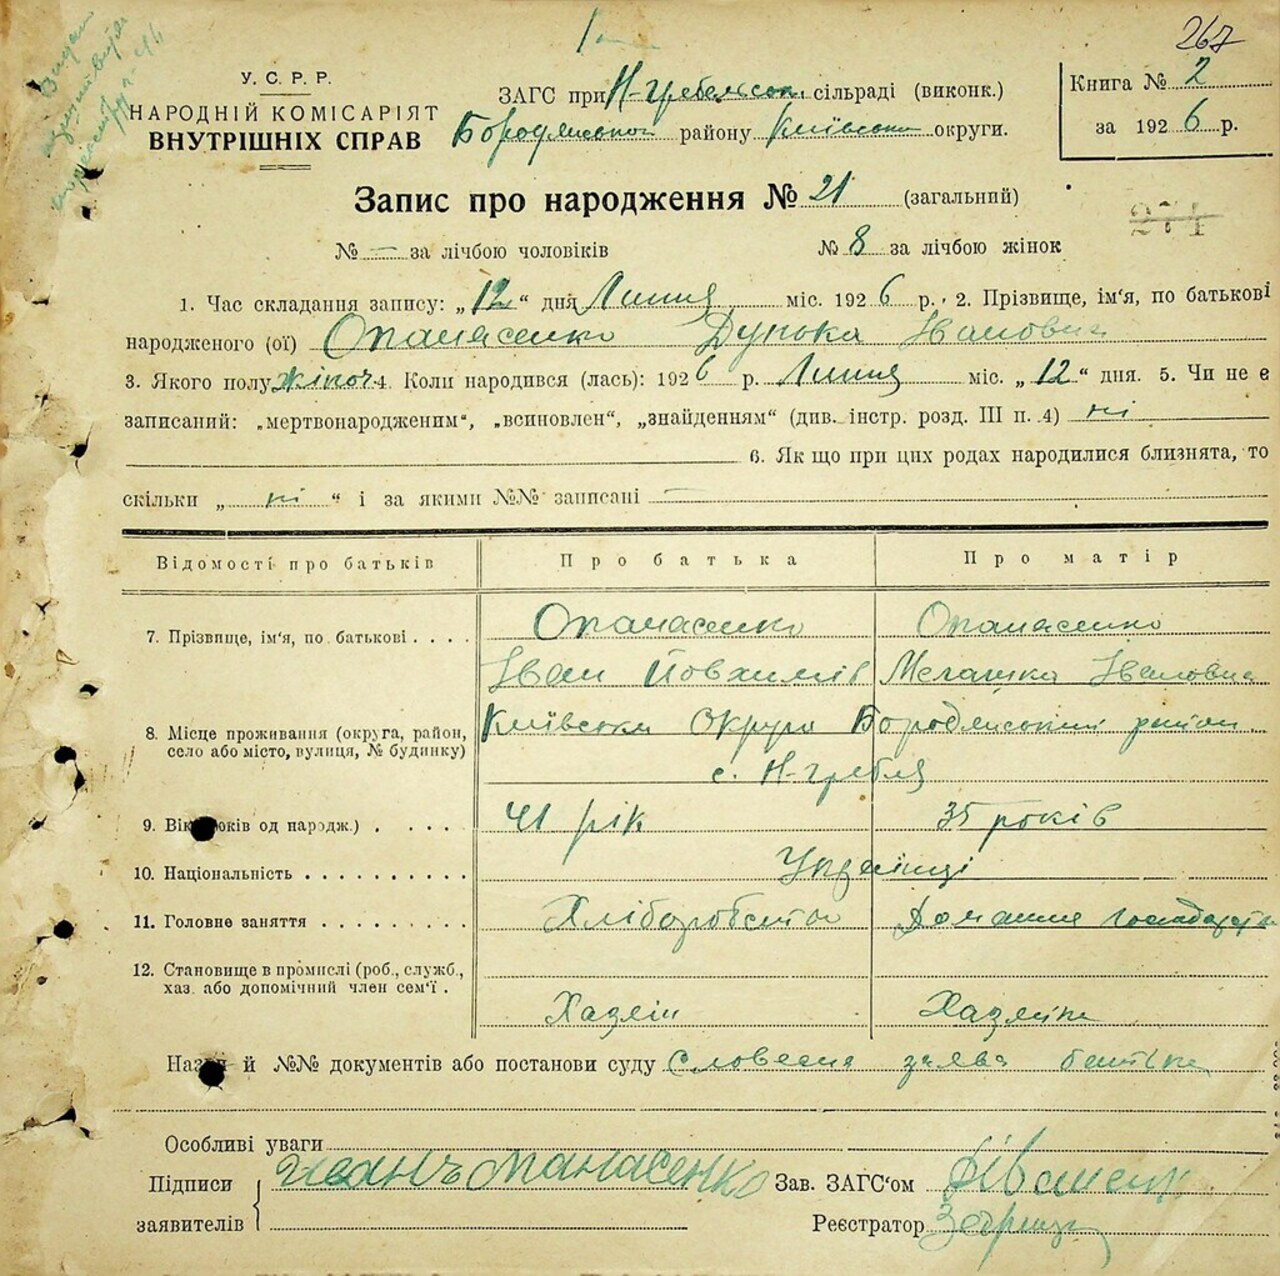 267
У. С. Р. Р.
НАРОДНІЙ КОМІСАРІЯТ
ВНУТРІШНІХ СПРАВ
ЗАГС при Н-Гребельск. сільраді (виконк.)
Бородянської району Київськи округи.
Книга № 2
за 1926 р.
Запис про народження № 21 (загальний)
274
№ — за лічбою чоловіків № 8 за лічбою жінок
1. Час складання запису: „12“ дня Липня міс. 1926 р. 2. Прізвище, ім'я, по батькові
народженого (ої) Опанасенко Дунька Іванович
3. Якого полу жіноч 4. Коли народився (лась): 1926 р. Липня міс. „12“ дня. 5. Чи не є
записаний: „мертвонародженим“, „всиновлен“, „знайденням“ (див. інстр. розд. III п. 4) ні
6. Як що при цих родах народилися близнята, то
скільки „ні“ і за якими №№ записані —
Відомості про батьків Про батька Про матір
7. Прізвище, ім'я, по батькові . . . . Опанасенко Опанасенко
Іван Йовхимів Мелашка Івановна
8. Місце проживання (округа, район, село або місто, вулиця, № будинку) Київська Округа Бородянський район
с. Н-Гребля
9. Вік років од народж.) . . . . . 41 рік 35 років
10. Національність . . . . . . . . . . Українці
11. Головне заняття . . . . . . . . . Хліборобство Домашнє господарство
12. Становище в промислі (роб., служб.,
хаз. або допомічний член сем'ї . Хазяїн Хазяйка
Назви й №№ документів або постанови суду Словесна заява батька
Особливі уваги
Підписи Иванъ Опанасенко Зав. ЗАГС'ом
заявителів Реєстратор